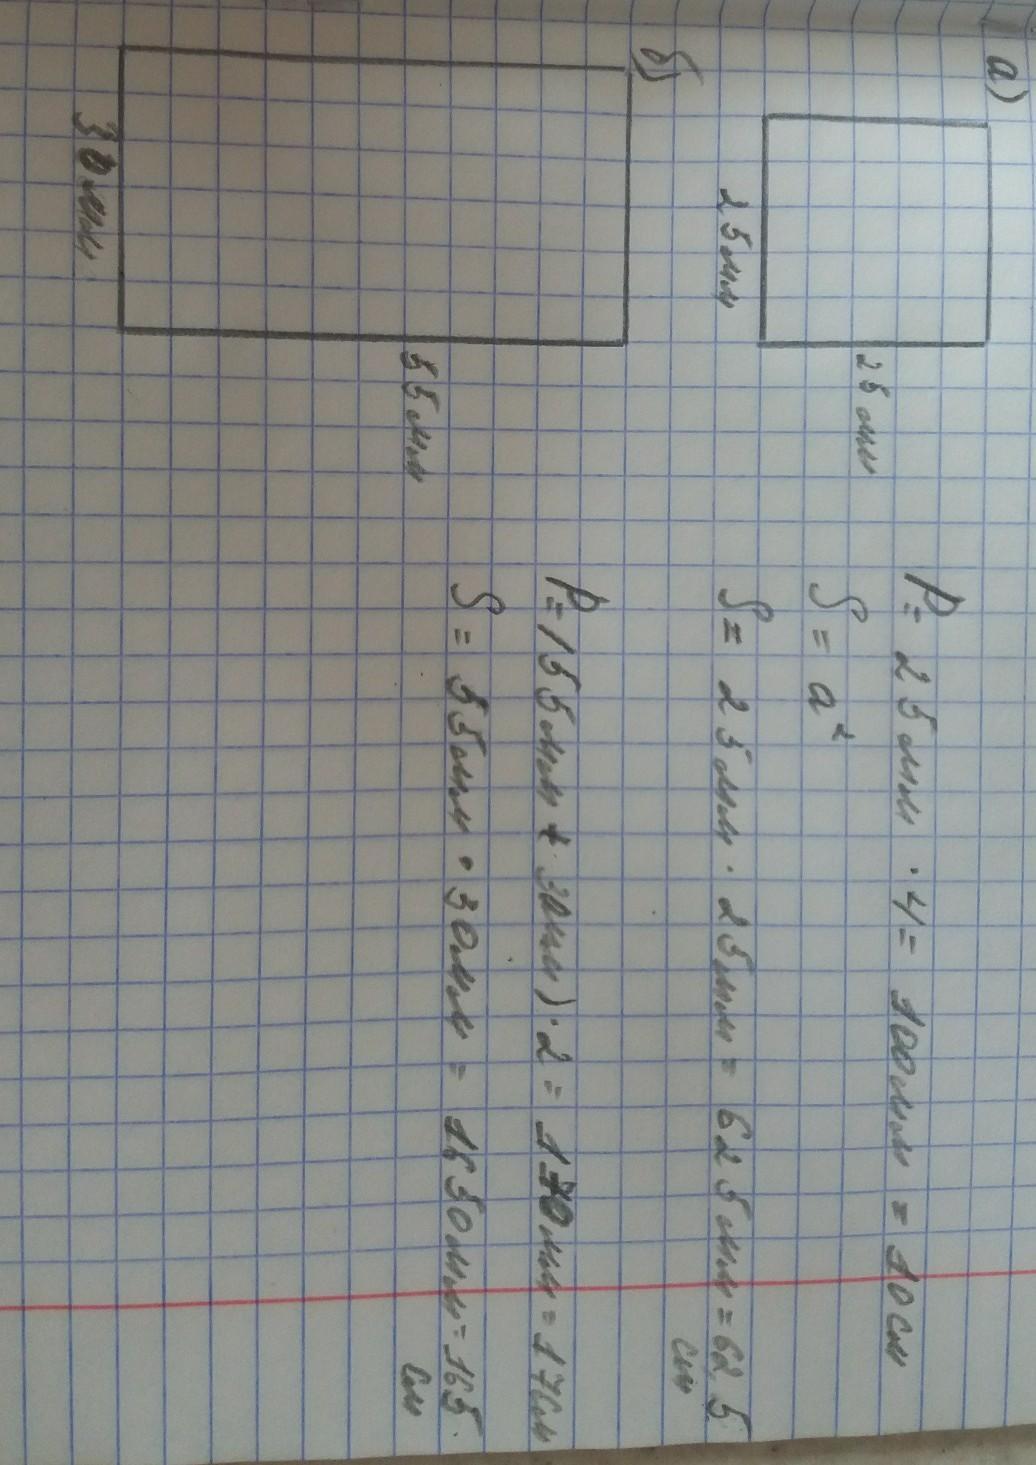 а)
25 мм
25 мм
P = 25 мм · 4 = 100 мм = 10 см
S = a²
S = 25 мм · 25 мм = 625 мм = 62,5
см
б)
55 мм
30 мм
P = (55 мм + 30 мм) · 2 = 170 мм = 17 см
S = 55 мм · 30 мм = 1650 мм = 165
см